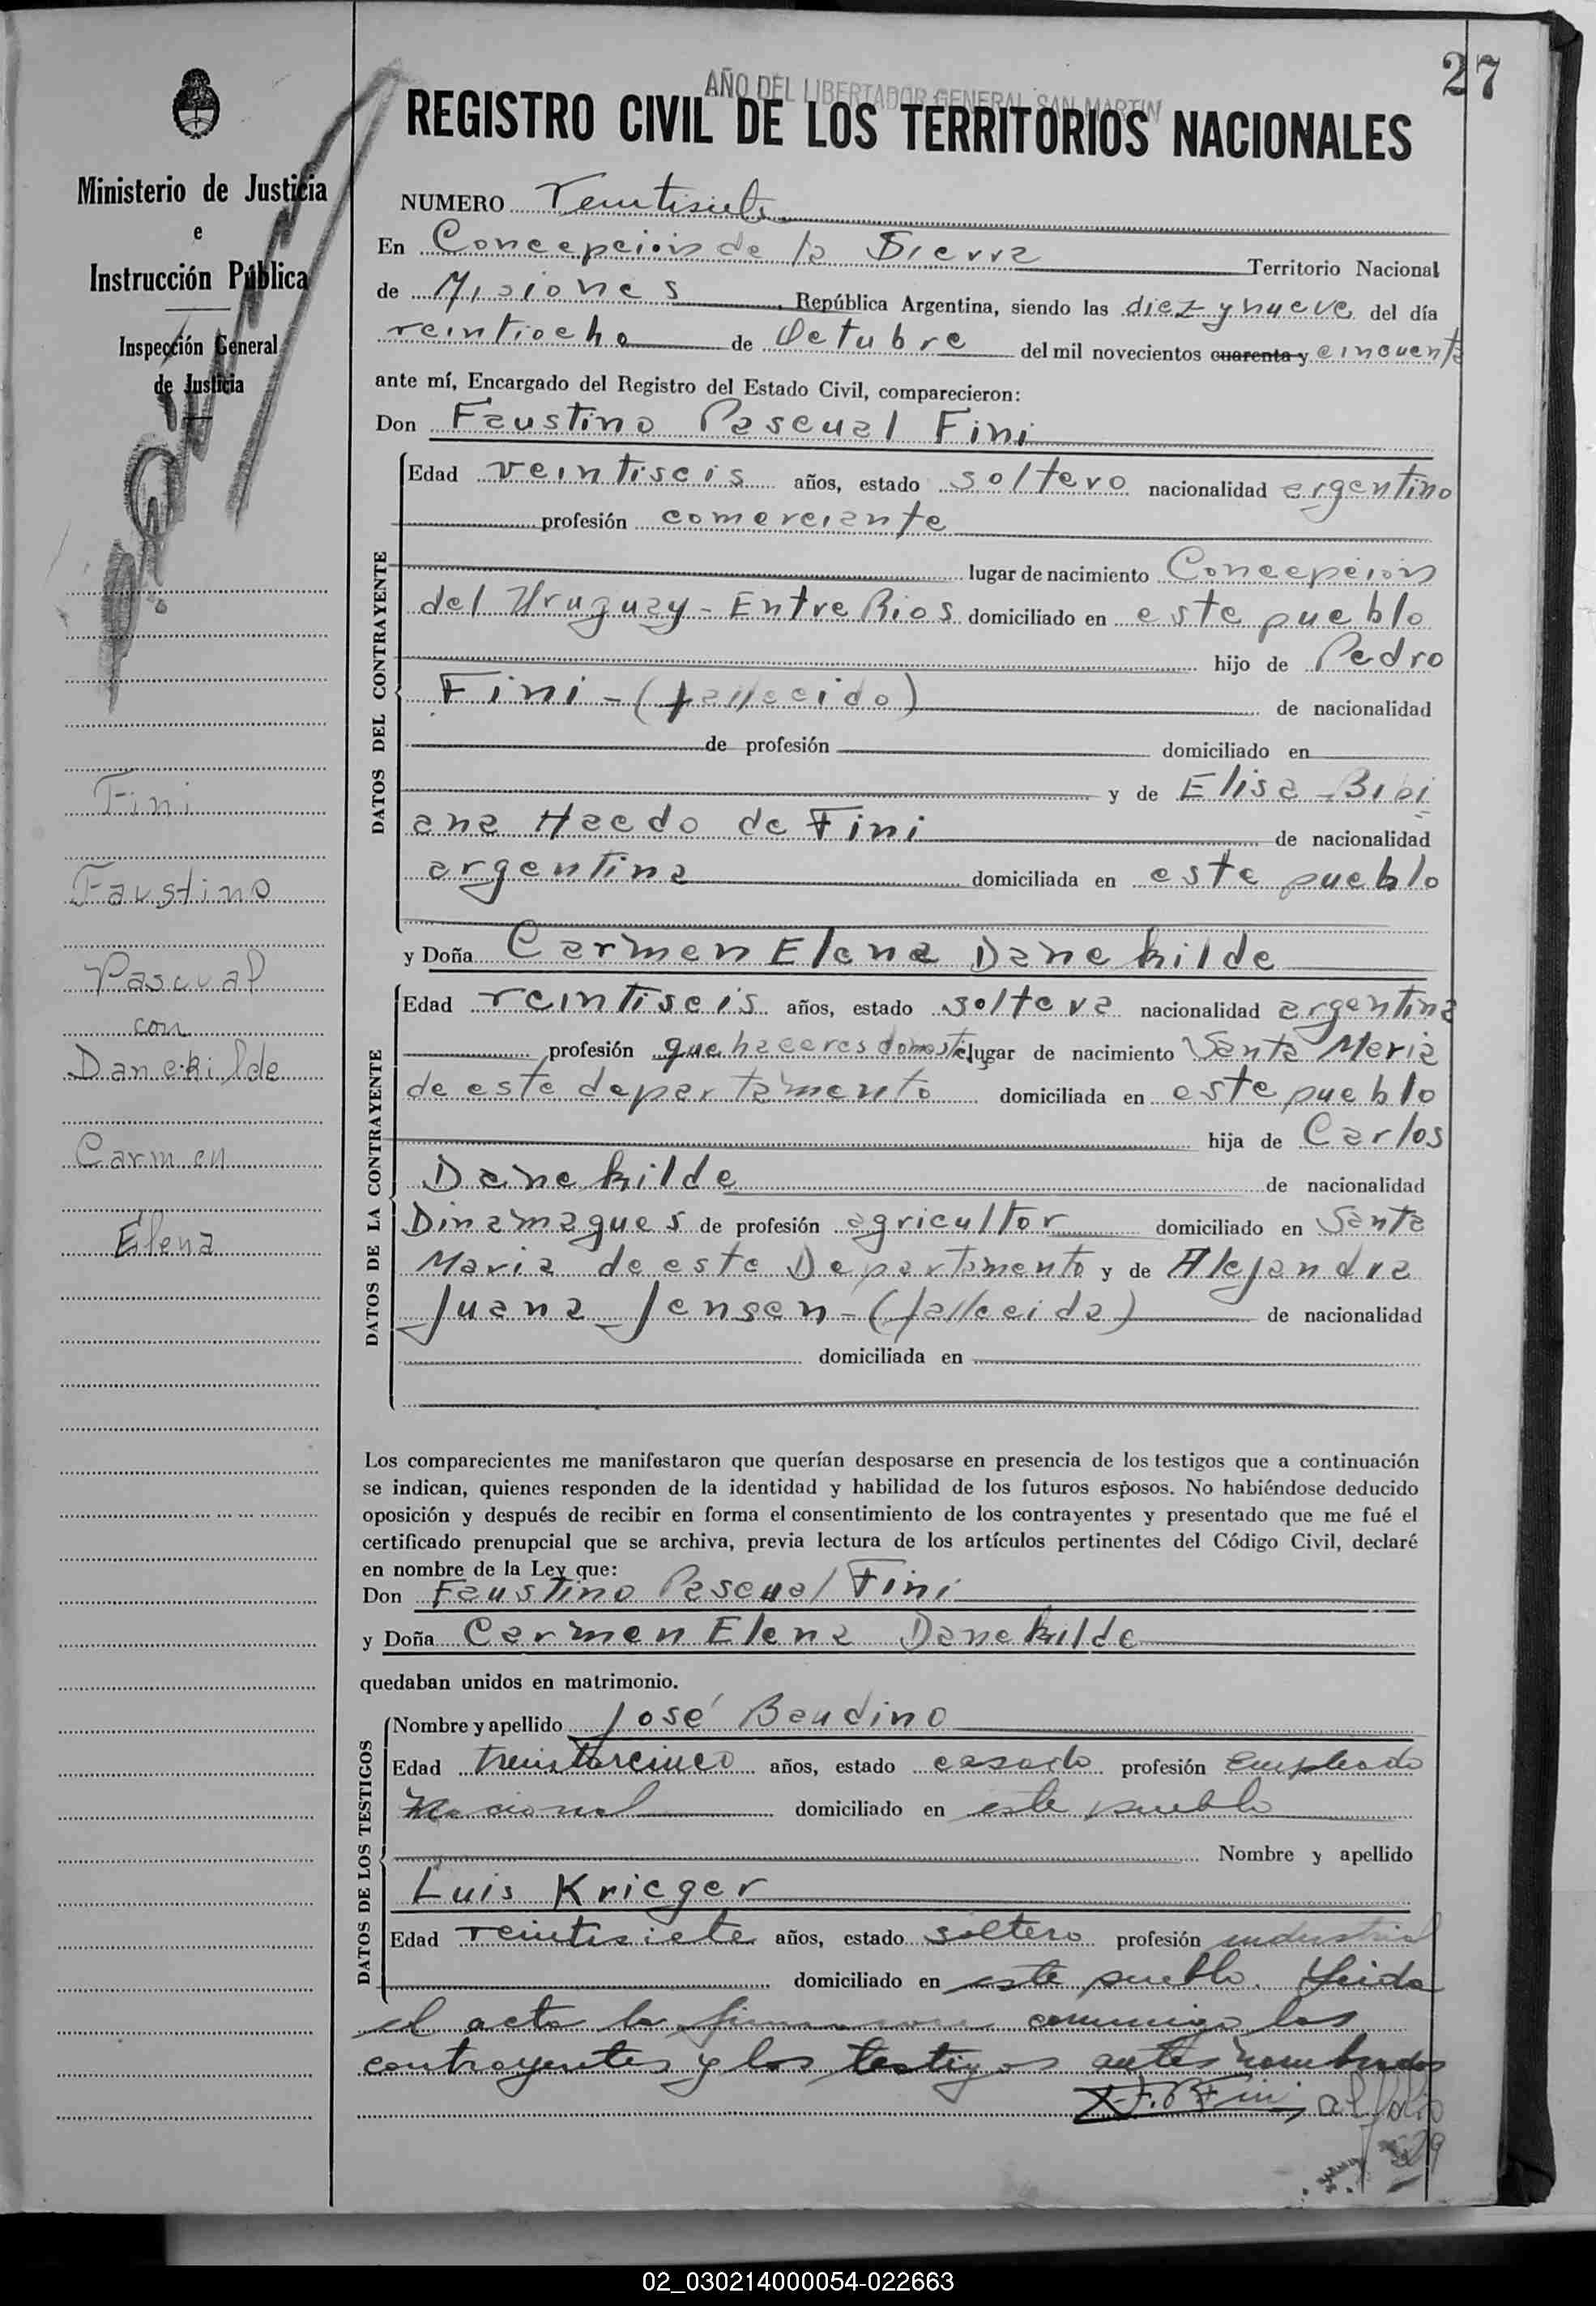 27
AÑO DEL LIBERTADOR GENERAL SAN MARTIN
REGISTRO CIVIL DE LOS TERRITORIOS NACIONALES
Ministerio de Justicia
e
Instrucción Pública
Inspección General
de Justicia
Fini
Faustino
Pascual
con
Danekilde
Carmen
Elena
NUMERO Veintisiete
En Concepción de la Sierra Territorio Nacional
de Misiones, República Argentina, siendo las diez y nueve del día
veintiocho de Octubre del mil novecientos cuarenta y cincuenta
ante mí, Encargado del Registro del Estado Civil, comparecieron:
Don Faustino Pascual Fini
DATOS DEL CONTRAYENTE
Edad veintiseis años, estado soltero nacionalidad argentino
profesión comerciante
lugar de nacimiento Concepción
del Uruguay - Entre Rios domiciliado en este pueblo
hijo de Pedro
Fini - (fallecido) de nacionalidad
de profesión domiciliado en
y de Elisa Bibi
ana Haedo de Fini de nacionalidad
argentina domiciliada en este pueblo
y Doña Carmen Elena Danekilde
DATOS DE LA CONTRAYENTE
Edad veintiseis años, estado soltera nacionalidad argentina
profesión quehaceres domest. lugar de nacimiento Santa Maria
de este departamento domiciliada en este pueblo
hija de Carlos
Danekilde de nacionalidad
Dinamagues de profesión agricultor domiciliado en Santa
Maria de este Departamento y de Alejandra
Juana Jensen - (fallecida) de nacionalidad
domiciliada en
Los comparecientes me manifestaron que querían desposarse en presencia de los testigos que a continuación
se indican, quienes responden de la identidad y habilidad de los futuros esposos. No habiéndose deducido
oposición y después de recibir en forma el consentimiento de los contrayentes y presentado que me fué el
certificado prenupcial que se archiva, previa lectura de los artículos pertinentes del Código Civil, declaré
en nombre de la Ley que:
Don Faustino Pascual Fini
y Doña Carmen Elena Danekilde
quedaban unidos en matrimonio.
DATOS DE LOS TESTIGOS
Nombre y apellido José Baudino
Edad treintaicinco años, estado casado profesión Empleado
Nacional domiciliado en este pueblo
Nombre y apellido
Luis Krieger
Edad veintisiete años, estado soltero profesión industrial
domiciliado en este pueblo. Leida
el acta la firmaron conmigo los
contrayentes y los testigos antes nombrados
F. P. Fini al folio
29
02_030214000054-022663